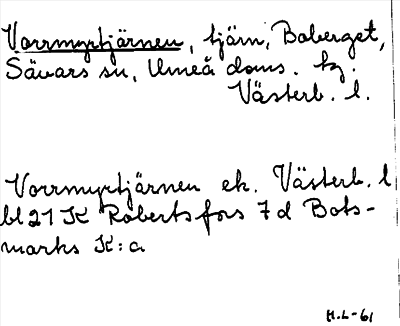 Vorrmyrtjärnen, tjärn, Boberget,
Sävars sn, Umeå doms. tg.
Västerb. l.
Vorrmyrtjärnen ek. Västerb. l
bl 21 K Robertsfors 7 d Bots-
marks K:a
H.L-61